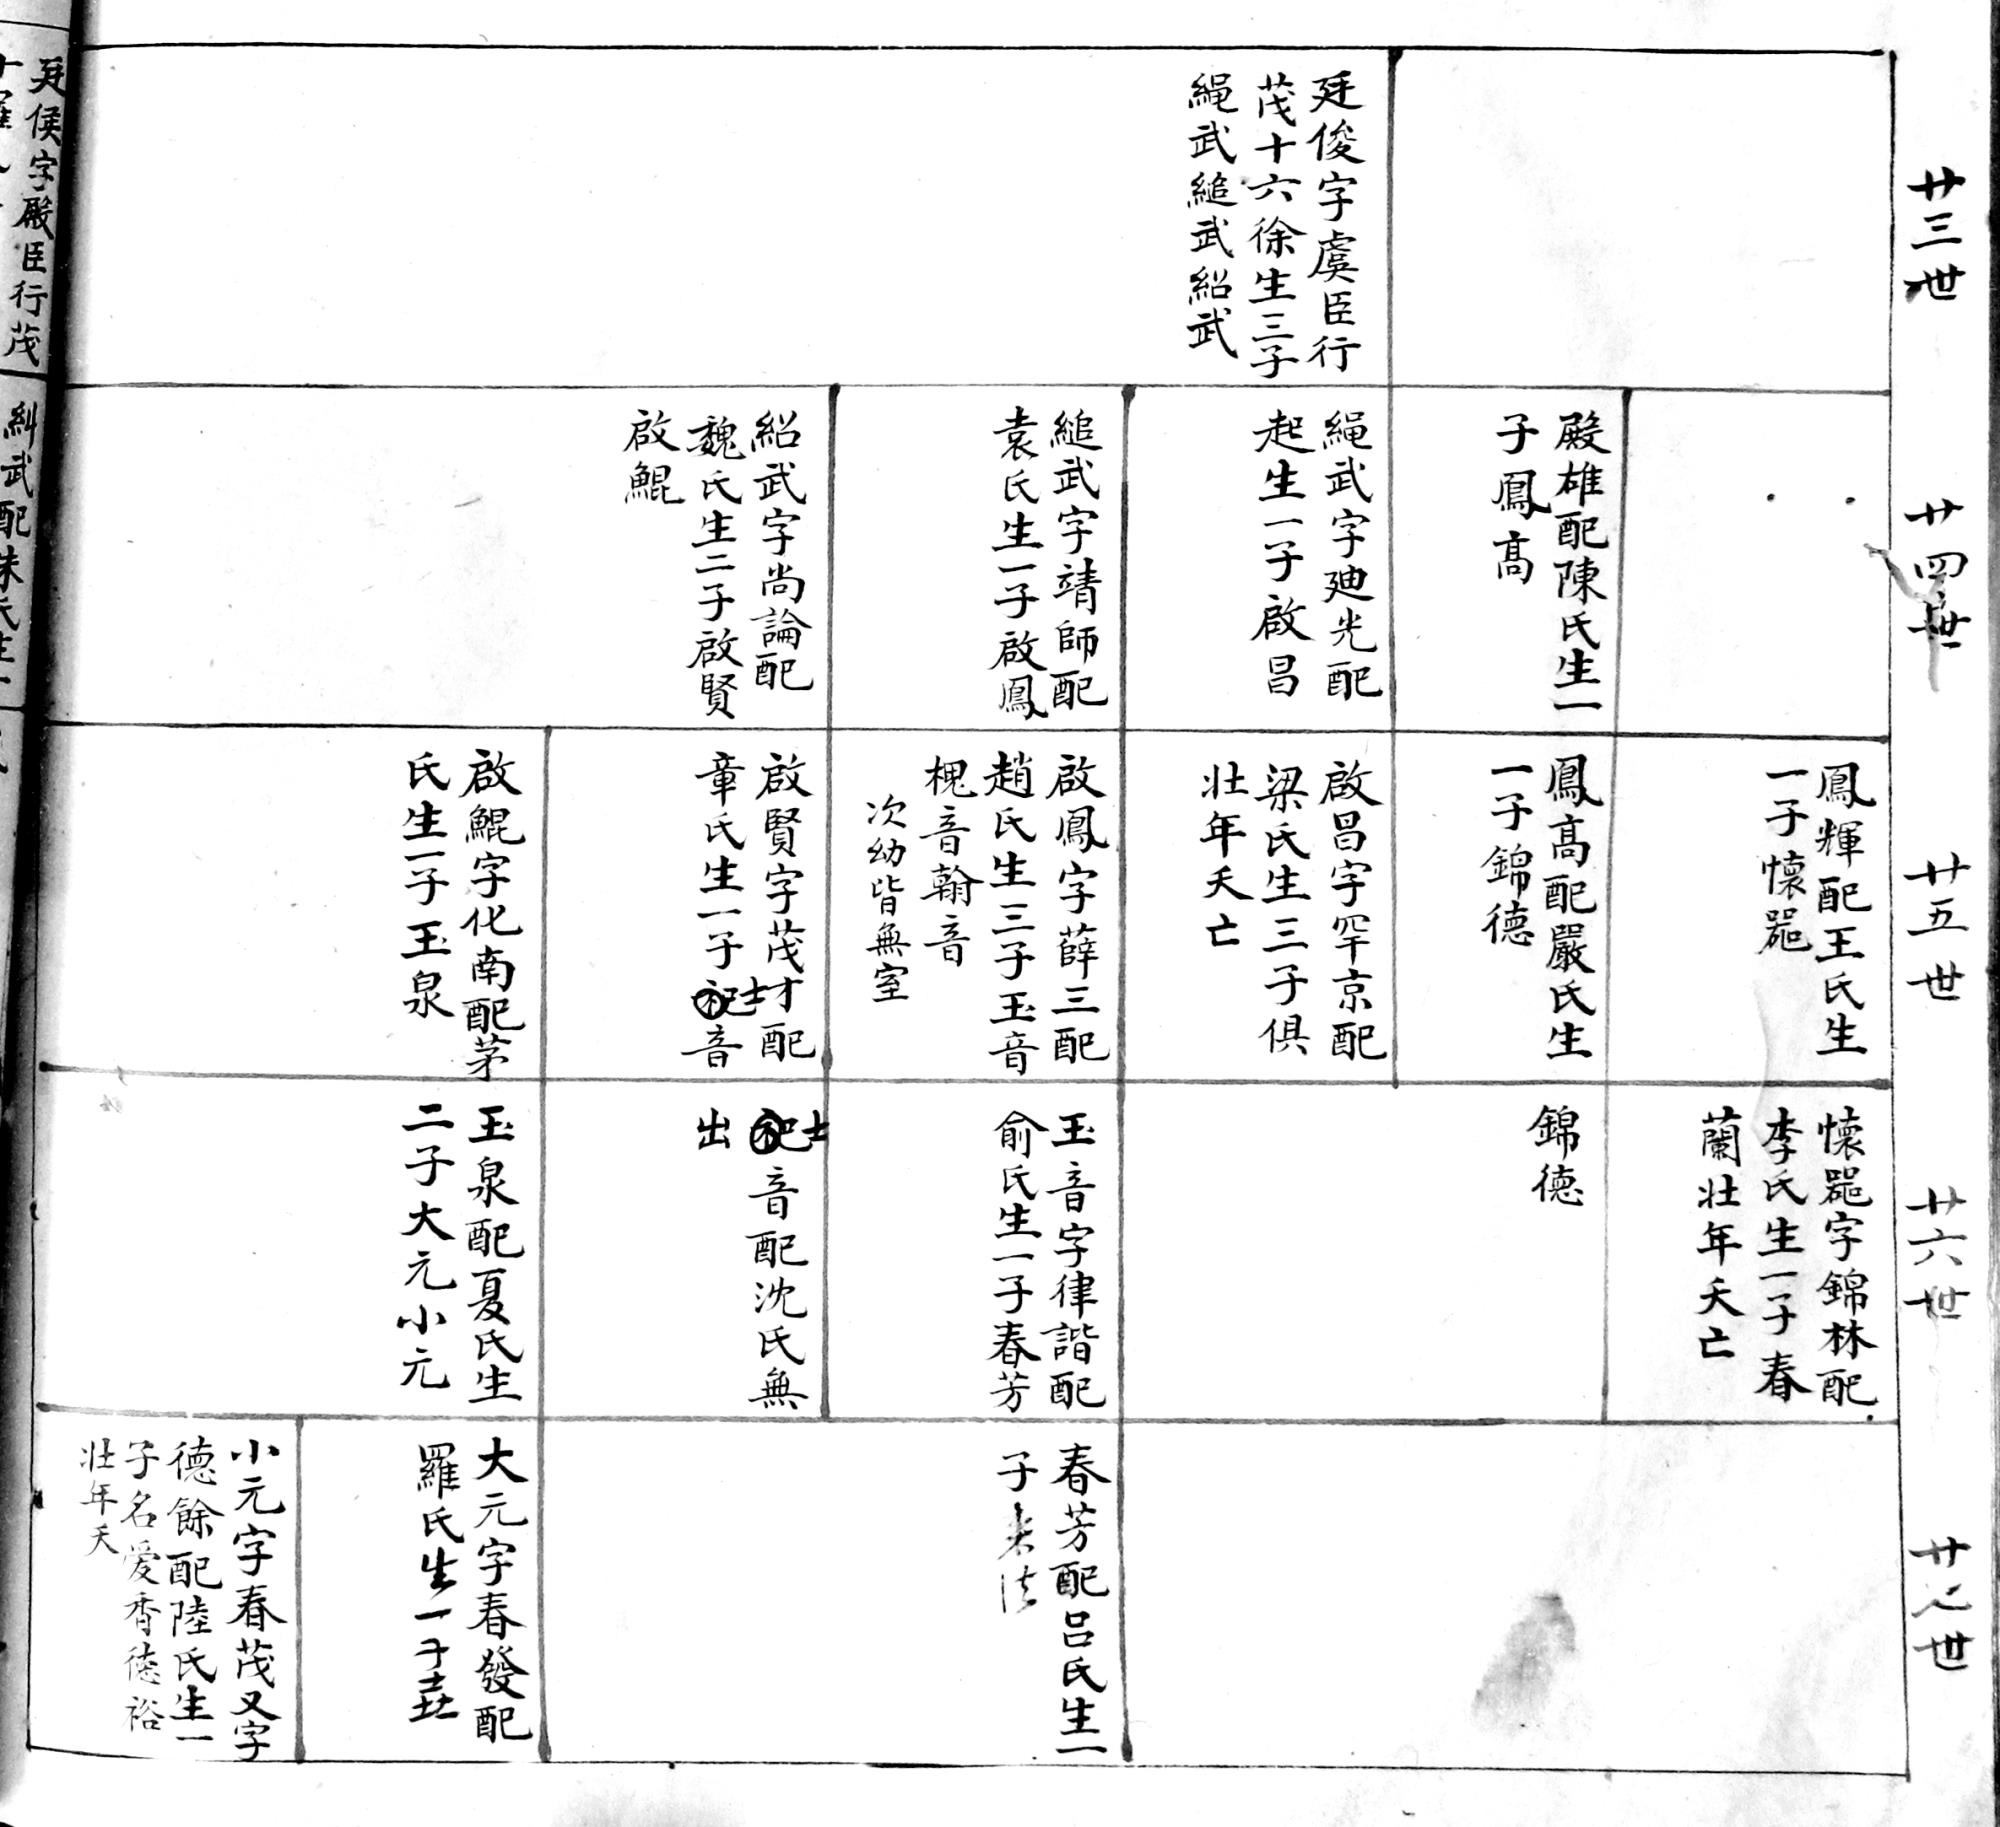 廿三世
廷俊字虞臣行
茂十六徐生三子
繩武縋武紹武
廿四世
殿雄配陳氏生一
子鳳高
繩武字廸光配
起生一子啟昌
縋武字靖師配
袁氏生一子啟鳳
紹武字尚論配
魏氏生二子啟賢
啟鯤
廿五世
鳳輝配王氏生
一子懷噐
鳳高配嚴氏生
一子錦德
啟昌字罕京配
梁氏生三子俱
壯年夭亡
啟鳳字薛三配
趙氏生三子玉音
槐音翰音
次幼皆無室
啟賢字茂才配
章氏生一子士音
啟鯤字化南配茅
氏生一子玉泉
廿六世
懷噐字錦林配
李氏生一子春
蘭壯年夭亡
錦德
玉音字律諧配
俞氏生一子春芳
士音配沈氏無
出
玉泉配夏氏生
二子大元小元
廿七世
春芳配吕氏生一
子来法
大元字春發配
羅氏生一子
小元字春茂又字
德餘配陸氏生一
子名爱香德裕
壯年夭
侯字殿臣行茂
糾武配朱氏生